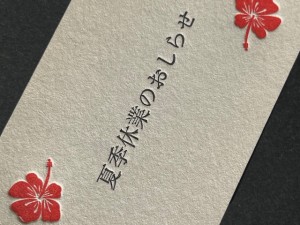 夏季休業のおしらせ